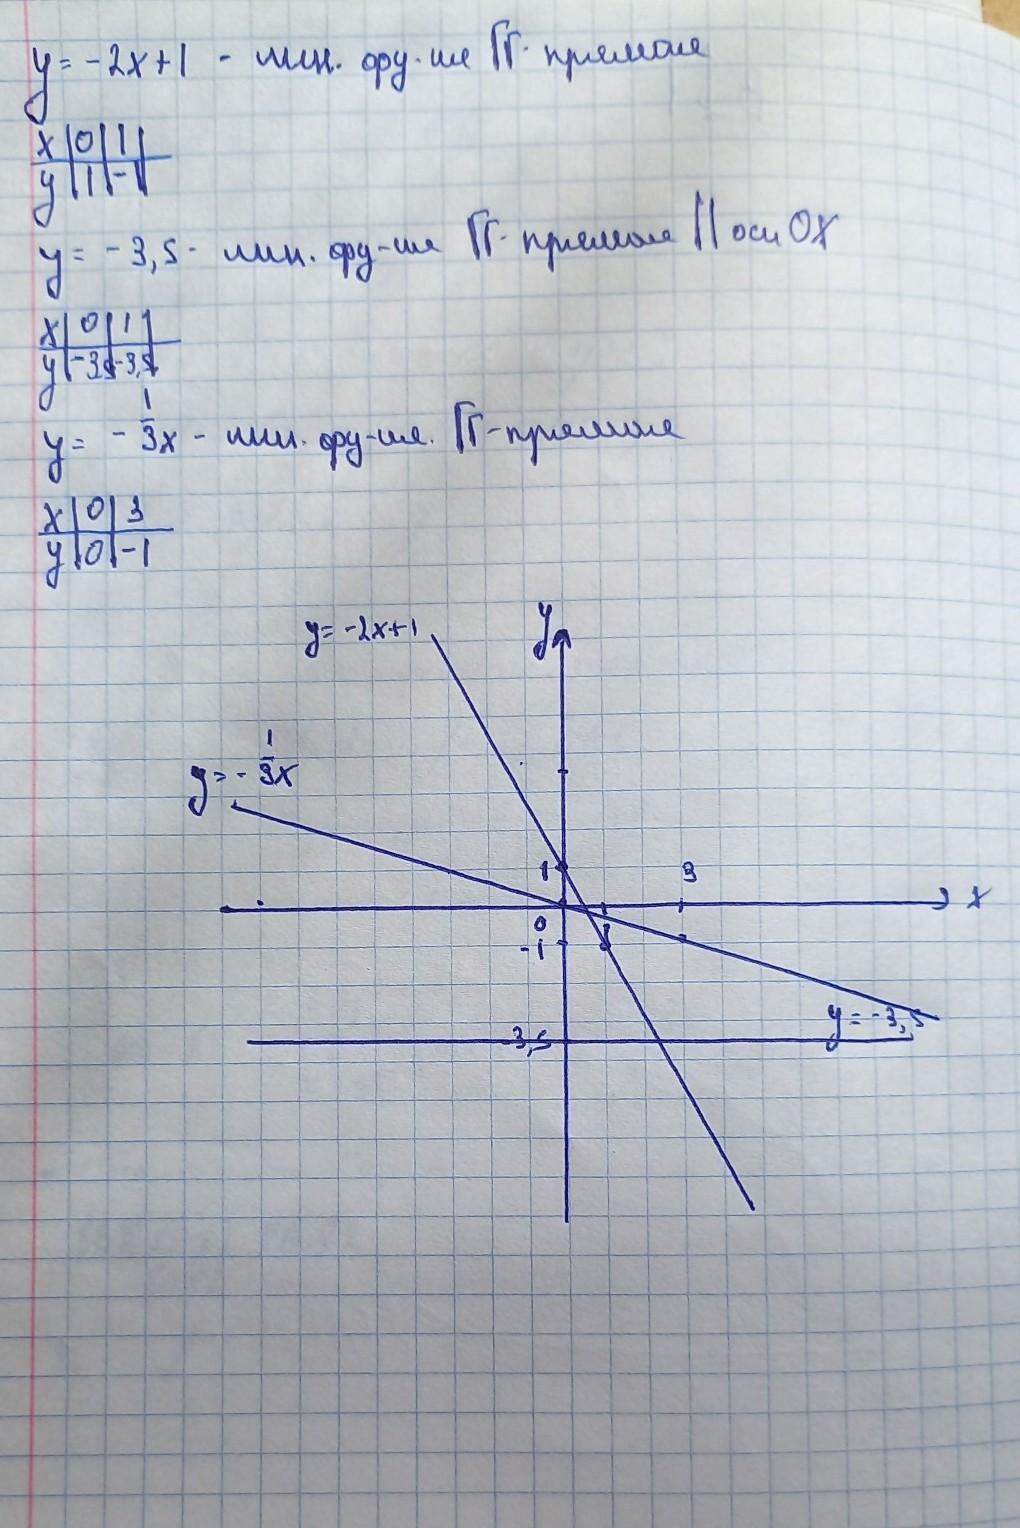 y = -2x+1 - лин. фу-ия ГГ- прямая
x | 0 | 1 |
y | 1 | -1
y = -3,5 - лин. фу-ия ГГ- прямая || оси OX
x | 0 | 1 |
y | -3,5 | -3,5
y = - 1/3 x - лин. фу-ия. ГГ- прямая
x | 0 | 3
y | 0 | -1
y
y = -2x+1
y = - 1/3 x
1
3
x
0
1
-1
y = -3,5
-3,5